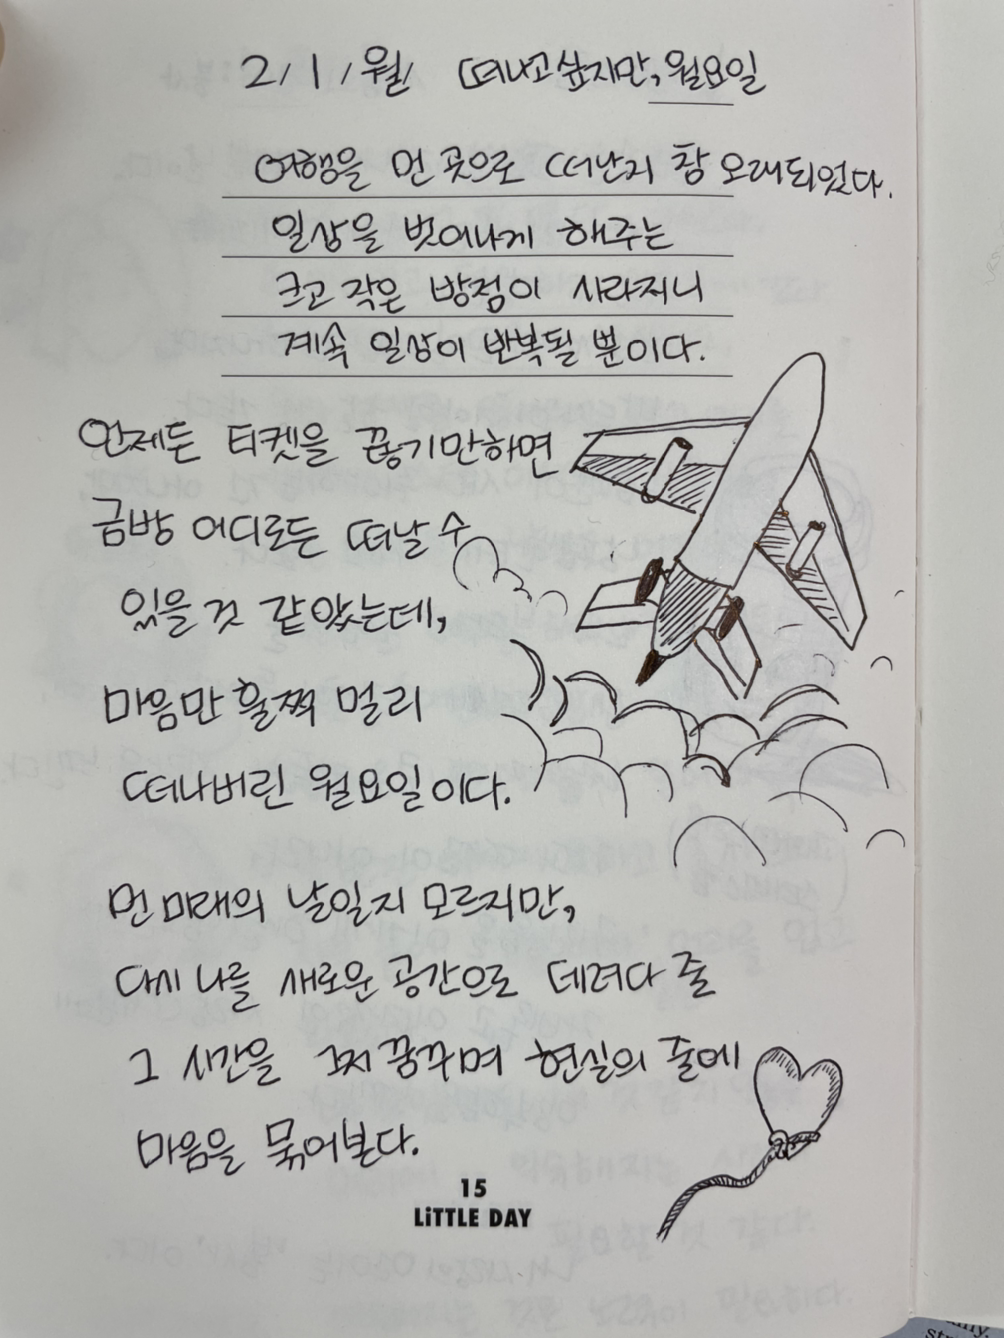 2/1/월/ 떠나고싶지만, 월요일
여행을 먼 곳으로 떠난지 참 오래되었다.
일상을 벗어나게 해주는
크고 작은 방점이 사라지니
계속 일상이 반복될 뿐이다.
언제든 티켓을 끊기만하면
금방 어디로든 떠날 수
있을 것 같았는데,
마음만 훌쩍 멀리
떠나버린 월요일이다.
먼 미래의 날일지 모르지만,
다시 나를 새로운 공간으로 데려다 줄
그 시간을 그저 꿈꾸며 현실의 줄에
마음을 묶어본다.
15
LiTTLE DAY